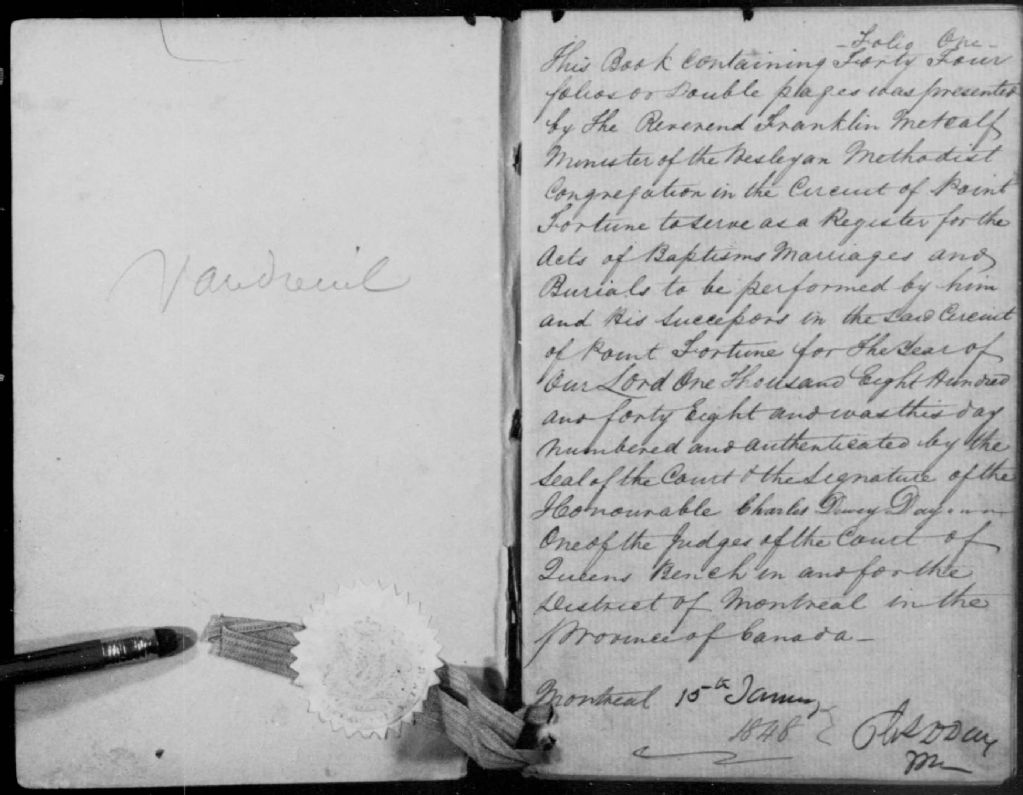 Vaudreuil
- Folio One -
This Book Containing Forty Four
folios or Double pages was presented
by the Reverend Franklin Metcalf
Minister of the Wesleyan Methodist
Congregation in the Circuit of Point
Fortune to serve as a Register for the
Acts of Baptisms Marriages and
Burials to be performed by him
and His Successors in the said Circuit
of Point Fortune for the Year of
Our Lord One Thousand Eight Hundred
and forty Eight and was this day
numbered and authenticated by the
Seal of the Court & the Signature of the
Honourable Charles Dewey Day
One of the Judges of the Court of
Queens Bench in and for the
District of Montreal in the
Province of Canada -
Montreal 15th
1848
Day